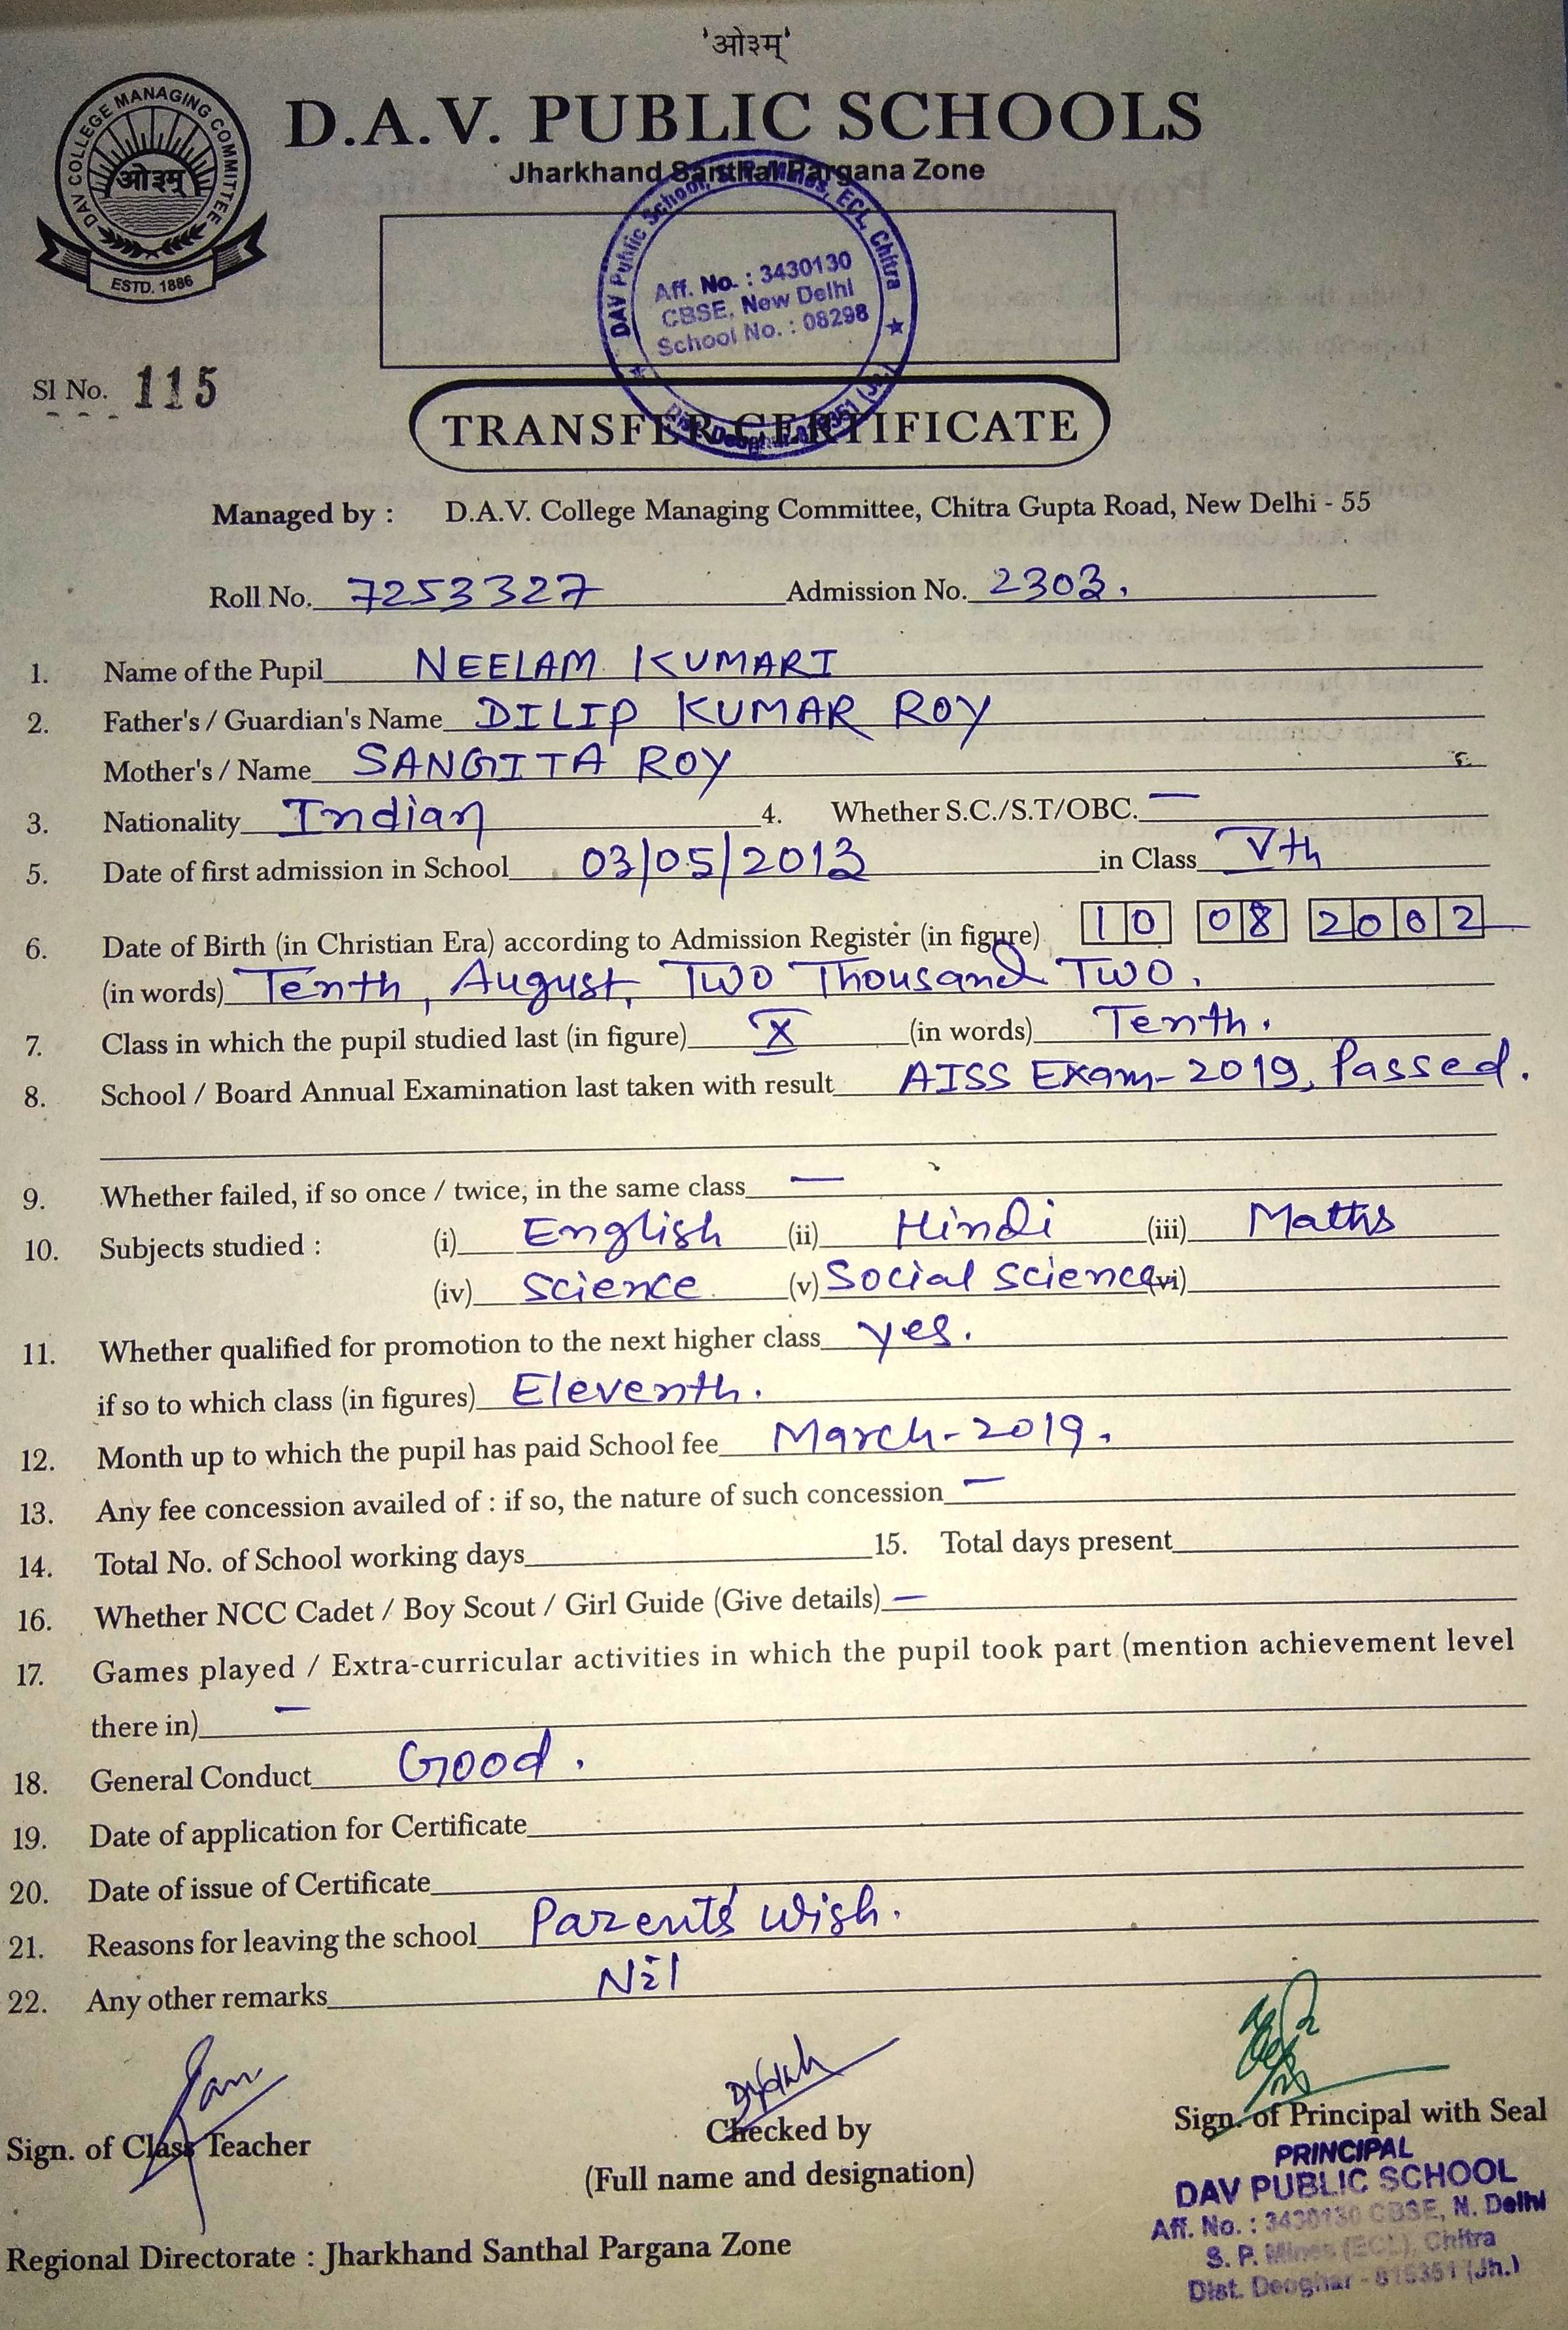 'ओ३म्'
DAV COLLEGE MANAGING COMMITTEE
ओ३म्
ESTD. 1886
D.A.V. PUBLIC SCHOOLS
Jharkhand Santhal Pargana Zone
DAV Public School, S.P. Mines, ECL, Chitra
Aff. No. : 3430130
CBSE, New Delhi
School No. : 08298
Sl No. 115
TRANSFER CERTIFICATE
Managed by : D.A.V. College Managing Committee, Chitra Gupta Road, New Delhi - 55
Roll No. 7253327 Admission No. 2303.
1. Name of the Pupil NEELAM KUMARI
2. Father's / Guardian's Name DILIP KUMAR ROY
Mother's / Name SANGITA ROY
3. Nationality Indian 4. Whether S.C./S.T/OBC. —
5. Date of first admission in School 03/05/2013 in Class Vth
6. Date of Birth (in Christian Era) according to Admission Register (in figure) 10 08 2002
(in words) Tenth, August, Two Thousand Two.
7. Class in which the pupil studied last (in figure) X (in words) Tenth.
8. School / Board Annual Examination last taken with result AISS Exam-2019, Passed.
9. Whether failed, if so once / twice, in the same class —
10. Subjects studied : (i) English (ii) Hindi (iii) Maths
(iv) Science (v) Social science (vi)
11. Whether qualified for promotion to the next higher class yes.
if so to which class (in figures) Eleventh.
12. Month up to which the pupil has paid School fee March-2019.
13. Any fee concession availed of : if so, the nature of such concession —
14. Total No. of School working days 15. Total days present
16. Whether NCC Cadet / Boy Scout / Girl Guide (Give details) —
17. Games played / Extra-curricular activities in which the pupil took part (mention achievement level
there in) —
18. General Conduct Good.
19. Date of application for Certificate
20. Date of issue of Certificate
21. Reasons for leaving the school Parents' wish.
22. Any other remarks Nil
Sign. of Class Teacher
Checked by
(Full name and designation)
Sign. of Principal with Seal
PRINCIPAL
DAV PUBLIC SCHOOL
Aff. No. : 3430130 CBSE, N. Delhi
S. P. Mines (ECL), Chitra
Dist. Deoghar - 815351 (Jh.)
Regional Directorate : Jharkhand Santhal Pargana Zone